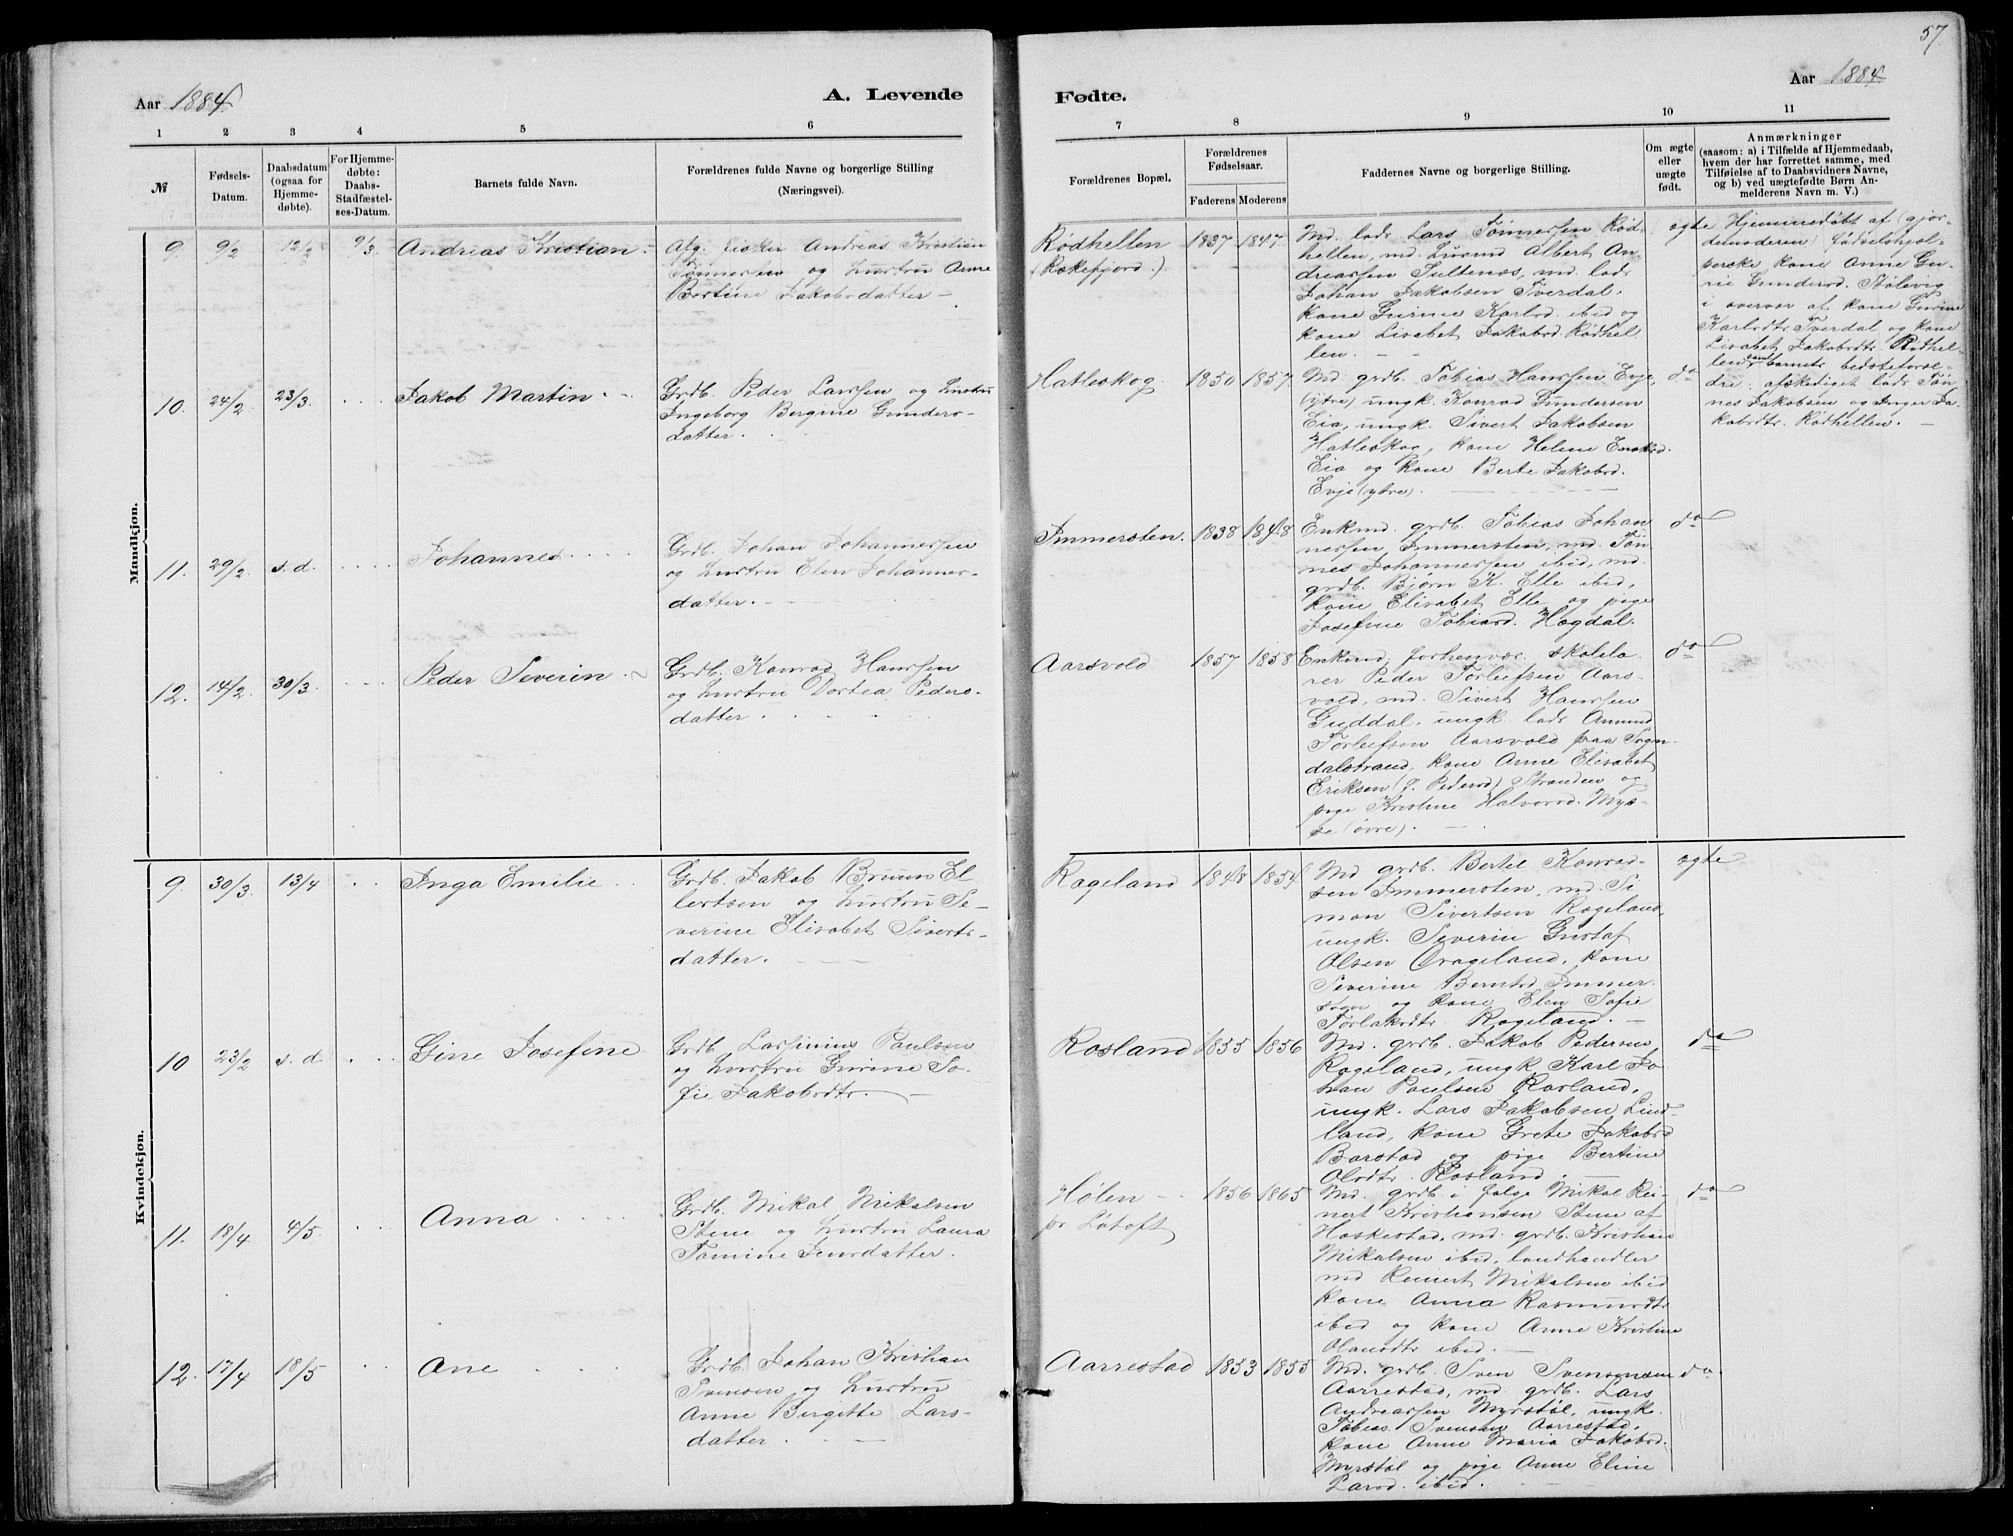 57.
Aar 1884.
A. Levende
Fødte.
Aar 1884.
1 2 3 4 5 6 7 8 9 10 11
№
Fødsels-
Datum.
Daabsdatum
(ogsaa for
Hjemme-
døbte).
For Hjemme-
døbte:
Daabs-
Stadfæstel-
ses-Datum.
Barnets fulde Navn.
Forældrenes fulde Navne og borgerlige Stilling
(Næringsvei).
Forældrenes Bopæl.
Forældrenes
Fødselsaar.
Faderens Moderens
Faddernes Navne og borgerlige Stilling
Om ægte
eller
uægte
født.
Anmærkninger
(saasom: a) i Tilfælde af Hjemmedaab,
hvem der har forrettet samme, med
Tilføielse af to Daabsvidners Navne,
og b) ved uægtefødte Børn An-
melderens Navn m. V.)
Mandkjøn.
9. 9/2 12/2 9/3 Andreas Kristian
Afg. fisker Andreas Kristian
Tønnersen og hustru Anne
Bertine Jakobsdatter
Rødhellen
(Rækefjord.)
1837 1847.
Md. lods Lars Tønnersen Rød-
hellen, md. Albert An-
dreassen md. lods
Johan Jakobsen Tverdal.
kone Gurine Karlsd. ibid og
kone Lisabet Jakobsd. Rødhel-
len.
ægte
Hjemmedøbt af (gjor-
demoderen) fødselshjæl-
perske kone Anne Gu-
rie Gundersd. Stølevig
i overvær af kone Gurine
Karlsdtr. Tverdal og kone
Lisabet Jakobsdtr. Rødhel-
len, samt barnets bedsteforæl-
dre: afskediget lods Tøn-
nes Jakobsen og Inger Ja-
kobsdtr. Rødhellen.
10. 24/2 23/3. Jakob Martin
Grdb. Peder Larssen og hustru
Ingeborg Bergine Gunders-
datter.
Hatleskog. 1850 1857.
Md grdb. Tobias Hanssen Evje,
(ytre) ungk. Konrad Gundersen
Eia, ungk. Sivert Jakobsen
Hatleskog, kone Helene Enoksd.
Eia og kone Berte Jakobsd.
Evje (ytre).
do
11. 29/2. s. d. Johannes
Grdb. Johan Johannessen
og hustru Elen Johannes-
datter.
Immersten. 1838 1848
Enkmd. grdb. Tobias Johan
nessen Immersten, md. Tøn
nes Johannessen ibid, md.
grdb. Bjørn K. Elle ibid,
kone Elisabet Elle og pige
Josefine Tobiasd. Høgdal.
do
12. 14/2. 30/3. Peder Severin
Grdb. Konrad Hanssen
og hustru Dortea Peders-
datter.
Aarsvold 1857 1858
Enkmd. forhenvær. skolelæ
rer Peder Torleifsen Aars-
vold, md. Sivert Hanssen
Guddal, ungk. lods Amund
Torleifsen Aarsvold paa Sogn-
dalstrand, kone Anne Elisabet
Eriksen (f. Pedersd.) Stranden og
pige Kristine Halvorsd. Mys-
se (øvre).
do
Kvindekjøn.
9. 30/3. 13/4 Inga Emilie
Grdb. Jakob Bruun El-
lertsen og hustru Se-
verine Elisabet Siverts-
datter.
Rægeland 1848 1854
Md grdb. Bertel Konrad-
sen Immersten, md. Si
mon Sivertsen Rægeland,
ungk. Severin Gustaf
Olsen Drageland, kone
Severine Berntsd. Immer-
sten og kone Elen Sofie
Torlaksdtr. Rægeland.
ægte
10 23/2 s. d. Gine Josefine
Grdb. Larsinius Paulsen
og hustru Gurine So-
fie Jakobsdtr.
Rosland 1855 1856
Md. grdb. Jakob Pedersen
Rægeland, ungk Karl Jo-
han Paulsen Rosland,
ungk. Lars Jakobsen Lind-
land, kone Grete Jakobsd
Barstad og pige Bertine
Olsdtr. Rosland.
do
11. 18/4 4/5 Anna
Grdb. Mikal Mikalsen
Stene og hustru Laura
Tomine Jensdatter.
Hølen
pr Løtoft
1856 1865
Md. grdb. i følge Mikal Rei-
nert Kristiansen Stene af
Heskestad, md. grdb. Kristian
Mikalsen ibid, landhandler
md Reinert Mikalsen ibid
kone Anna Rasmusdtr
ibid og kone Anne Kristine
Olausdtr ibid.
do
12. 17/4 18/5 Ane
Grdb. Johan Kristian
Svensen og hustru
Anne Birgitte Lars-
datter.
Aarrestad 1853 1855
Md. grdb. Sven Svensen
Aarrestad, md. grdb. Lars
Andreassen Myrstøl, ungk.
Tobias Svensen Aarrestad,
kone Anne Maria Jakobsd.
Myrstøl og pige Anne Eline
Larsd. ibid.
do